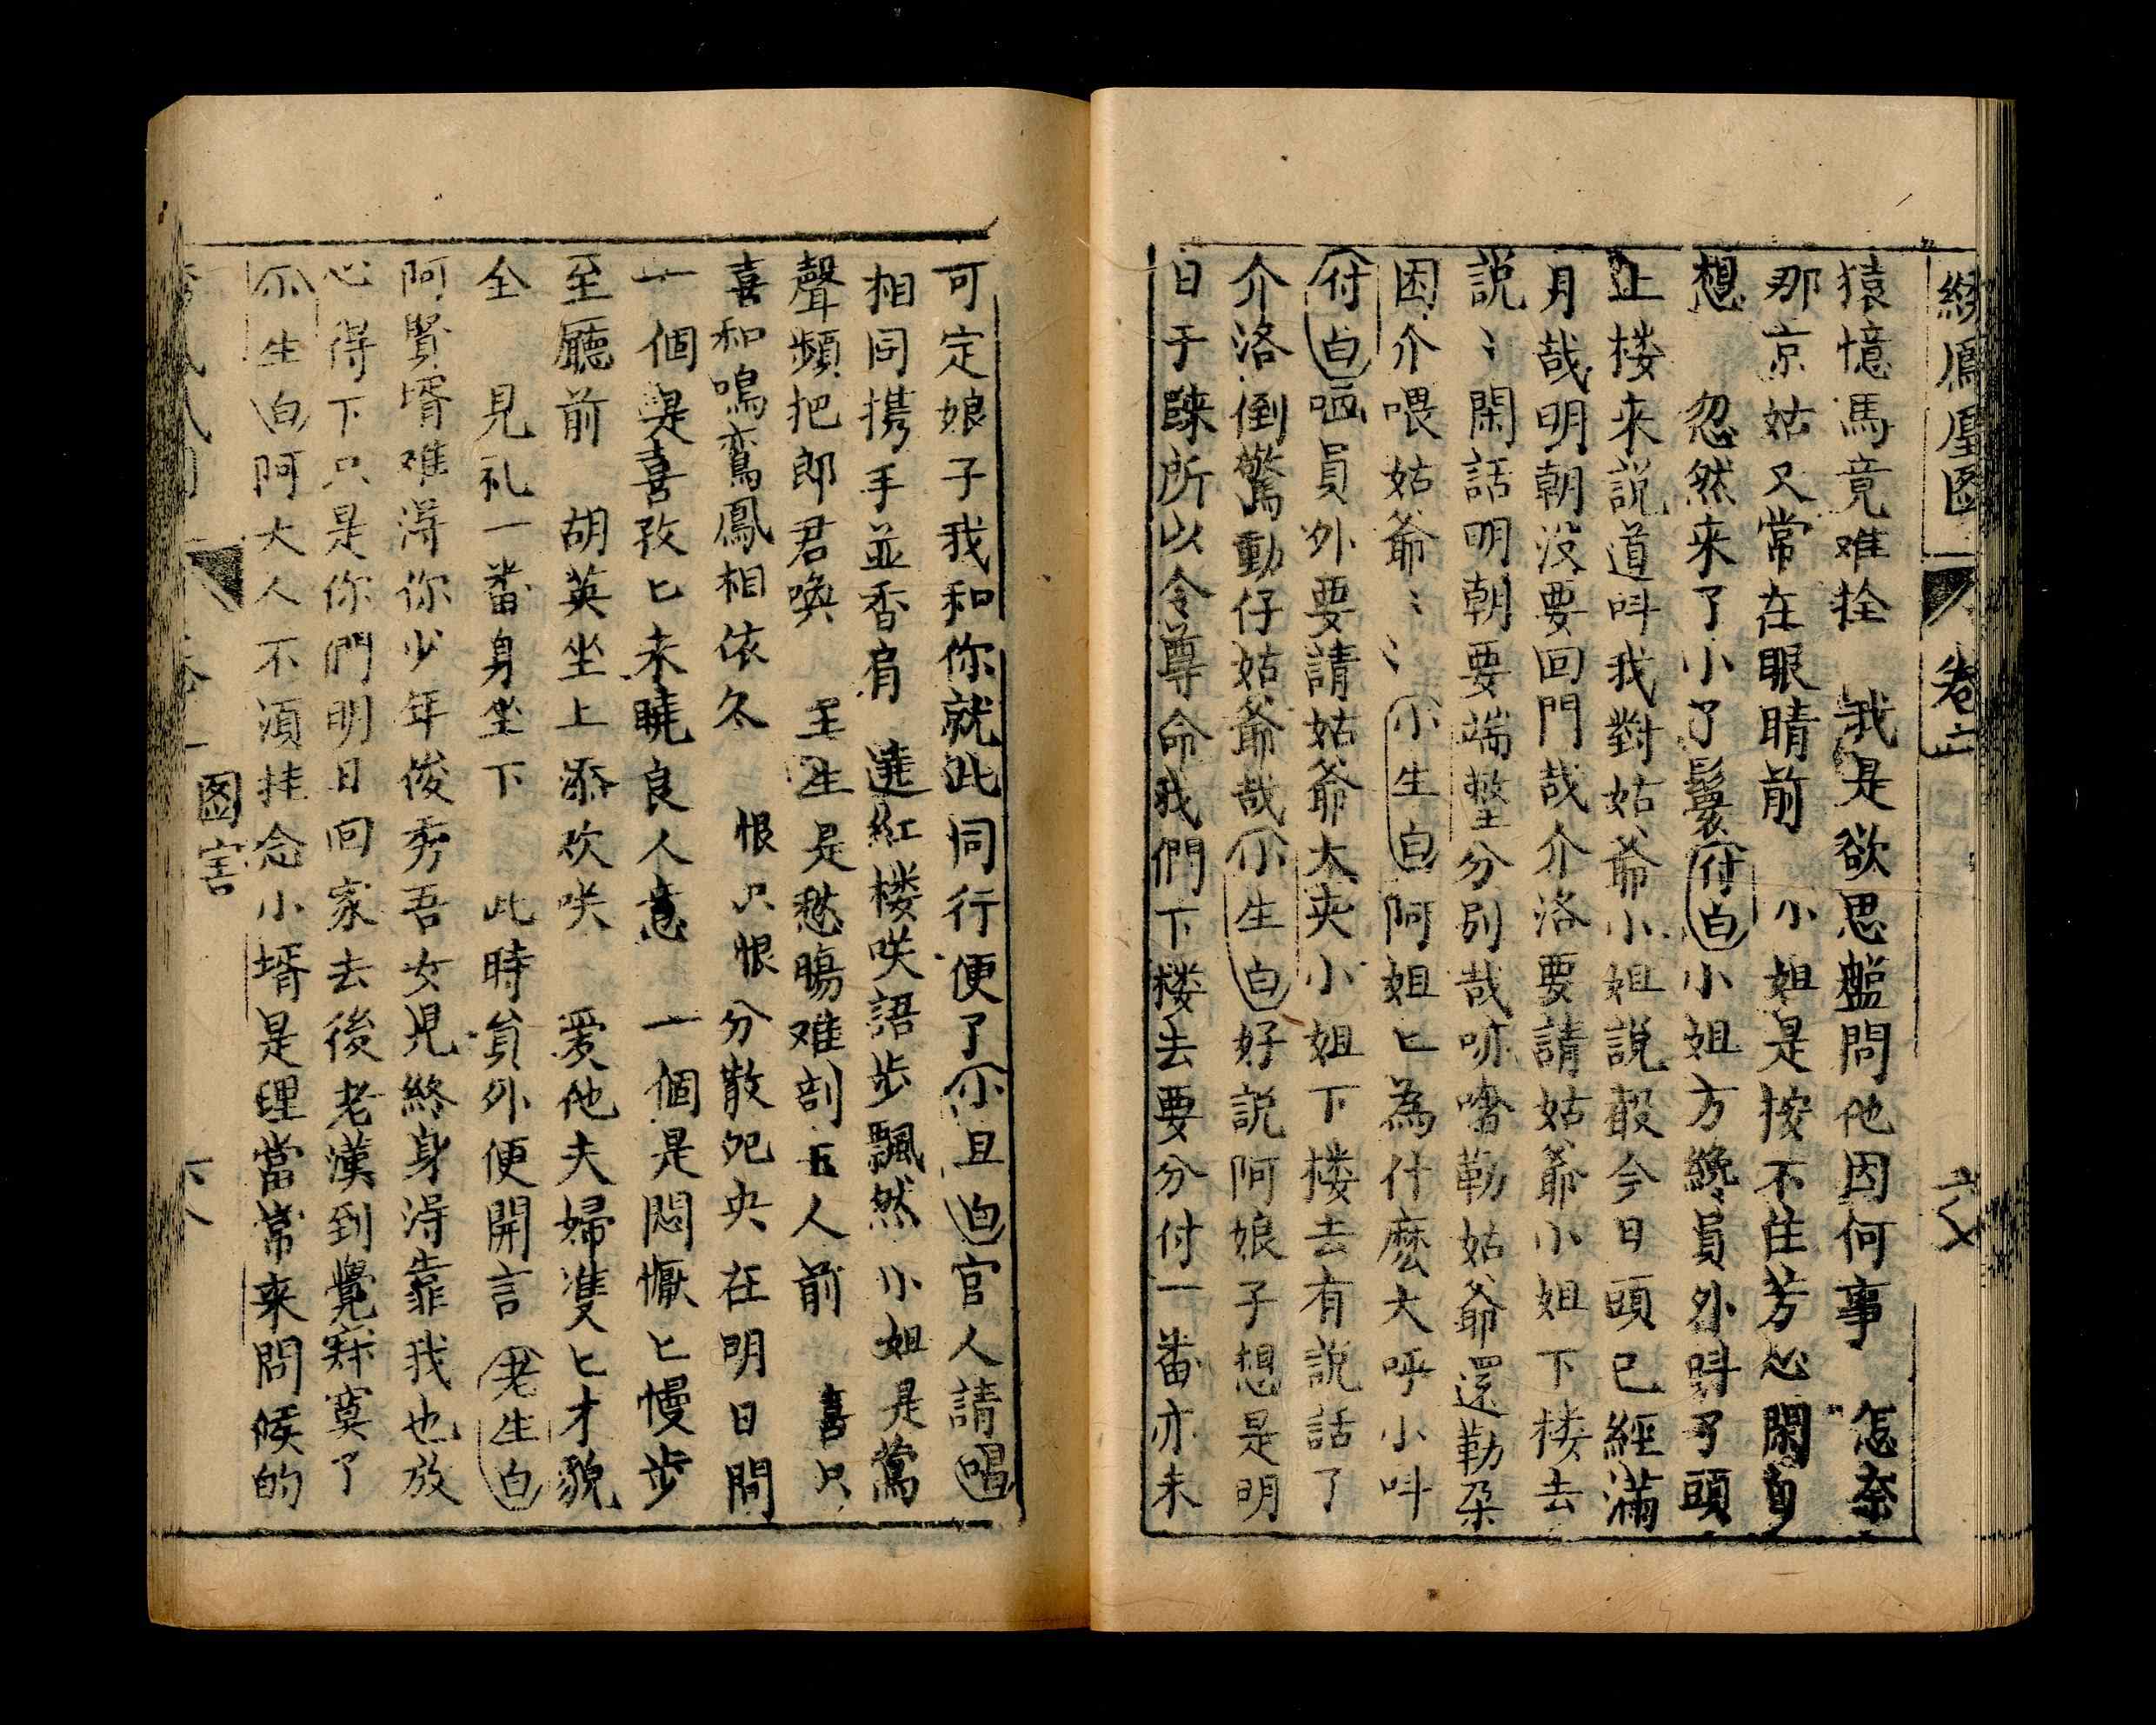 綉鳳凰圖 卷六
猿憶馬竟难拴 我是欲思盤問他因何事 怎奈
那京姑又常在眼睛前 小姐是按不住芳心閑自
想 忽然来了小了鬟付白小姐方纔員外呌了頭
上楼来説道呌我對姑爺小姐説殽今日頭已經滿
月哉明朝没要回門哉介洛要請姑爺小姐下楼去
説〻閑話明朝要端整分别哉㖡嗜勒姑爺還勒朶
困介喂姑爺〻〻小生白阿姐匕為什麽大呼小呌
付白𠳨員外要請姑爺大夹小姐下楼去有説話了
介洛倒驚動仔姑爺哉小生白好説阿娘子想是明
日于歸所以令尊命我們下楼去要分付一番亦未
可定娘子我和你就此同行便了小旦白官人請唱
相同携手並香肩 遶紅楼咲語步飄然 小姐是鶯
聲頻把郎君喚 王生是愁腸难剖五人前 喜只
喜和鳴鸞鳳相依久 恨只恨分散夗央在明日間
一個是喜孜匕未曉良人意 一個是悶懨匕慢步
至廳前 胡英坐上添欢咲 爱他夫婦雙匕才貌
全 見礼一番身坐下 此時貟外便開言 老生白
阿賢壻难淂你少年俊秀吾女児終身淂靠我也放
心得下只是你們明日回家去後老漢到覺寂寞了
小生白阿大人不須挂念小壻是理當常来問候的
图害